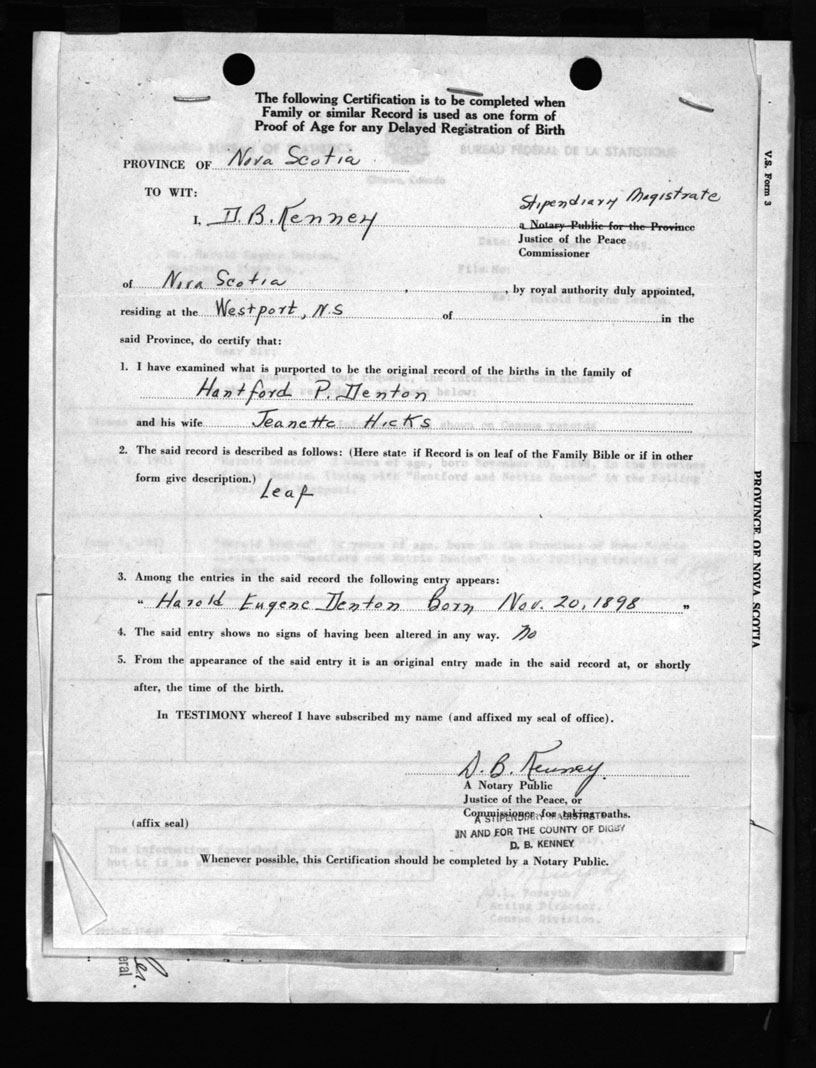 The following Certification is to be completed when
Family or similar Record is used as one form of
Proof of Age for any Delayed Registration of Birth
PROVINCE OF Nova Scotia
TO WIT:
Stipendiary Magistrate
I, D.B. Kenney a Notary Public for the Province
Justice of the Peace
Commissioner
of Nova Scotia , , by royal authority duly appointed,
residing at the Westport, N.S of in the
said Province, do certify that:
1. I have examined what is purported to be the original record of the births in the family of
Hantford P. Denton
and his wife Jeanette Hicks
2. The said record is described as follows: (Here state if Record is on leaf of the Family Bible or if in other
form give description.) Leaf
3. Among the entries in the said record the following entry appears:
" Harold Eugene Denton Born Nov. 20, 1898 "
4. The said entry shows no signs of having been altered in any way. No
5. From the appearance of the said entry it is an original entry made in the said record at, or shortly
after, the time of the birth.
In TESTIMONY whereof I have subscribed my name (and affixed my seal of office).
D. B. Kenney
A Notary Public
Justice of the Peace, or
Commissioner for taking oaths.
A STIPENDIARY MAGISTRATE
(affix seal)
IN AND FOR THE COUNTY OF DIGBY
D. B. KENNEY
Whenever possible, this Certification should be completed by a Notary Public.
V.S. Form 3
PROVINCE OF NOVA SCOTIA